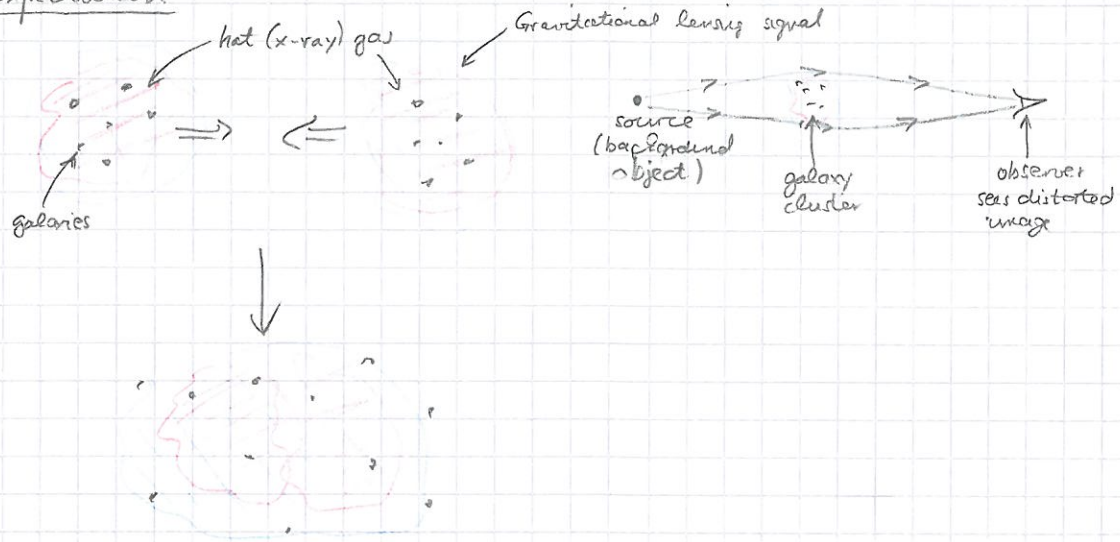 hot (x-ray) gas
Gravitational lensing signal
galaxies
source
(background
object)
galaxy
cluster
observer
sees distorted
image